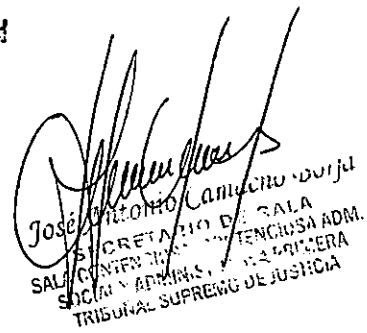 José Antonio Camacho Borja
SECRETARIO DE SALA
SALA CONTENCIOSA ADM.
SOCIAL Y ADMINIS. PRIMERA
TRIBUNAL SUPREMO DE JUSTICIA